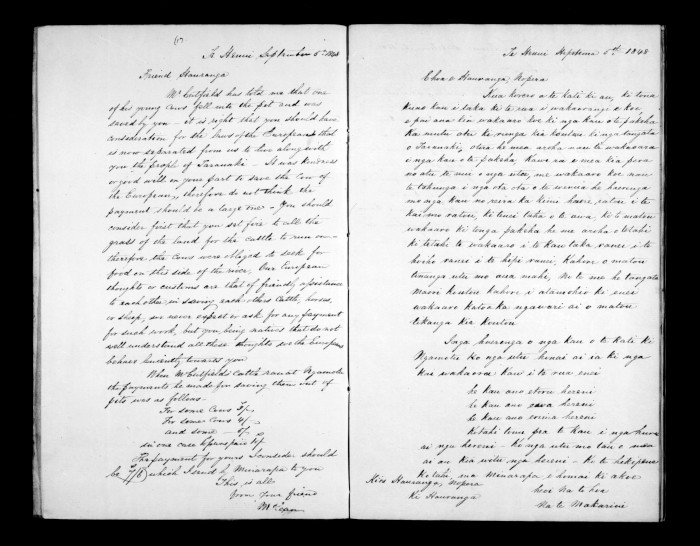 (17
Te Henui September 6th 1848
Friend Hauranga
Mr Cutfield has told me that one
of his young Cows fell into the pit and was
saved by you - it is right that you should have
consideration for the Cows of the European that
is now separated from us to live along with
you the people of Taranaki - It was kindness
& good will on your part to save the Cow of
the European, therefore do not think the
payment should be a large one - You should
consider first that you set fire to all the
grass of the land for the cattle to run on -
therefore the Cows were obliged to seek for
food on this side of the river. Our European
thoughts or customs are that of friendly assistance
to each other in saving each others Cattle, horses,
or sheep, we never expect or ask for any payment
for such work, but you, being natives that do not
well understand all these thoughts, we the Europeans
behave leniently towards you
When Mr Cutfields Cattle ran at Ngamotu
the payments he made for saving them out of
pits was as follows -
For some Cows 5/-
For some Cows 4/-
and some -
in one case
The payment for yours I consider should
be which I send by Minarapa to you
This is all
from your friend
McLean
Te Henui Hepetema 6th 1848
Ehoa e Hauranga, Nopera
Kua korero a te Kati ki au, ki tona
kuao kau i taka ki te rua i wakaorangi e koe
e pai ana kia wakaaro koe ki nga kau o te pakeha
Ka motu atu ki renga kia koutou ki nga tangata
o Taranaki, otira he mea aroha nau te wakaoara
o nga kau o te pakeha kaua
no atu te nui o nga utu, me wakaaro koe nau
te tahunga i nga ota ota o te wenua he haerenga
mo nga kau no reira ka kimi haere ratou i te
kai mo ratou, ki tenei taha o te awa. ki ta matou
wakaaro ki tenga pakeha he mea aroha o tetahi
ki tetahi te wakaaro i te kau taka ranei i te
hoiho ranei i te hipi ranei, Kahore o matou
tonanga utu mo ana mahi, Na te mea he tangata
Maori koutou kahore i atamohio ki enei
wakaaro katoa ka ngawari ai o matou
tikanga kia koutou
Inga haerenga o nga kau o te Kati ki
Ngamotu Ko nga utu homai ai ia ki nga
kau wakaorana kau i te rua enei
he kau ano etoru hereni
he kau ano ewa hereni
he kau ano erima hereni
Kotahi tino pra te kau i nga
ai nga hereni - Ko nga utu mo tau o mea
ai au kia witu nga hereni - Ko te hikipene
Kotahi, ma Minarapa e homai ki akoe
Kia Hauranga, Nopera
heoi Na te hoa
Ki Hauranga
Na te Makarini